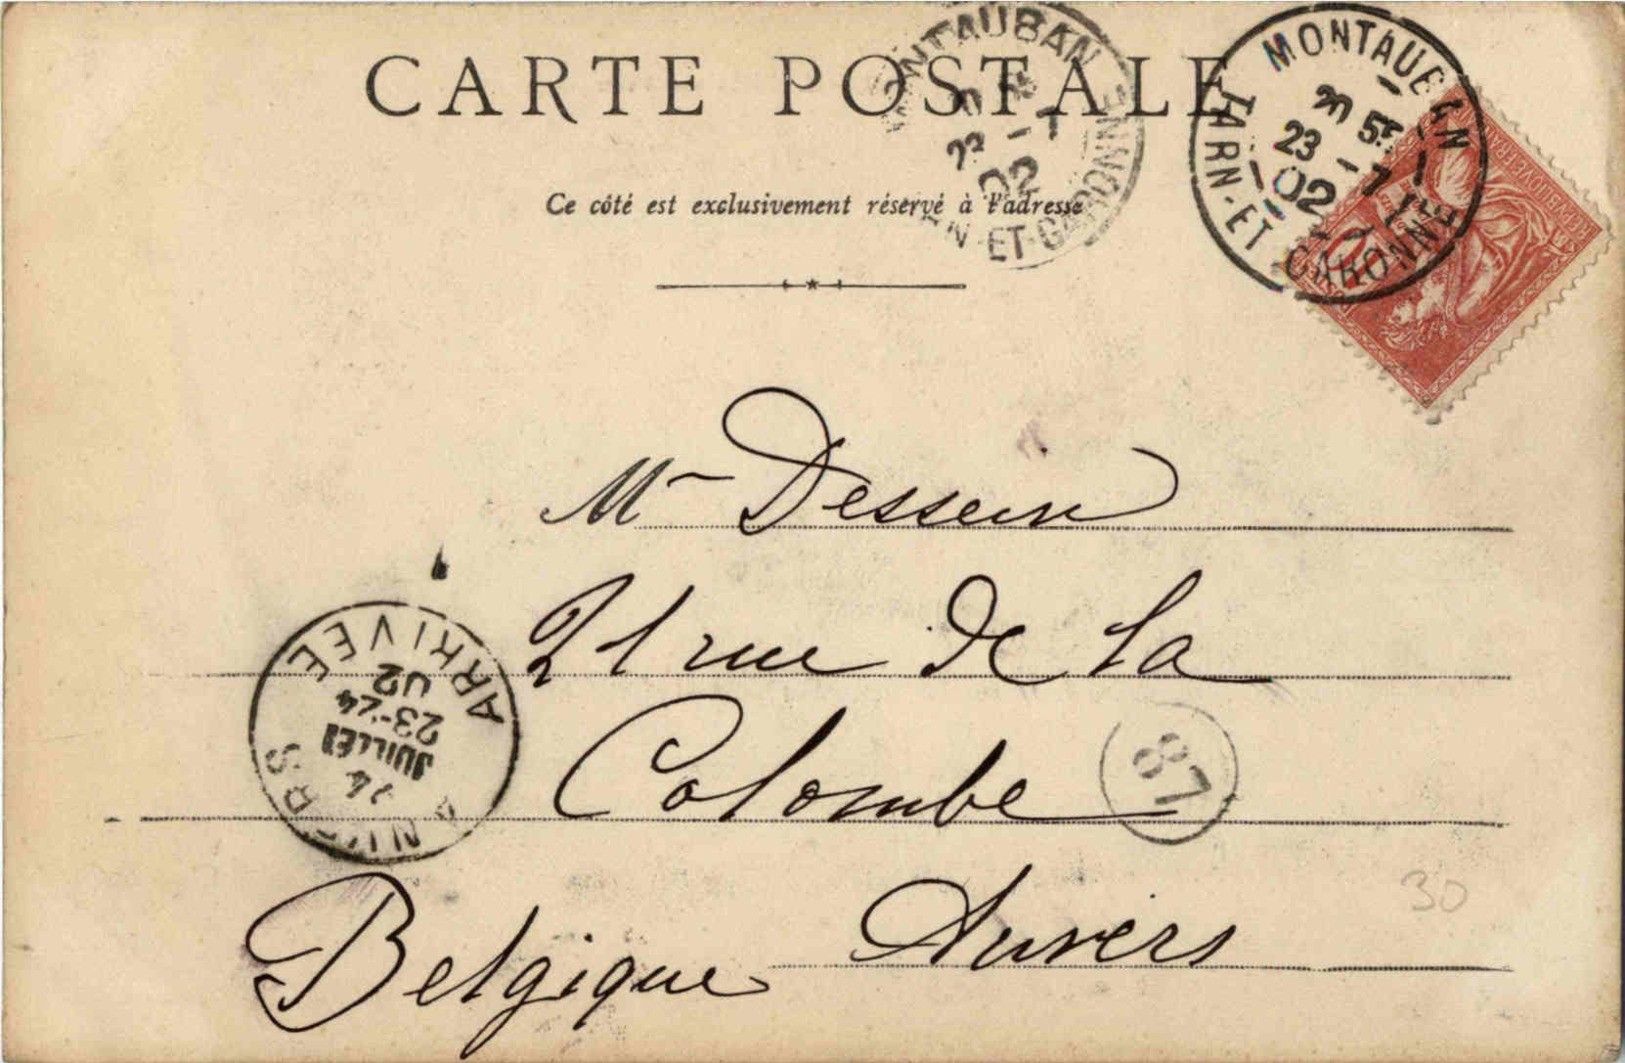 CARTE POSTALE
Ce côté est exclusivement réservé à l'adresse
MONTAUBAN
23 -7
02
ET-GARONNE
MONTAUBAN
20 55
23 -7
02
TARN-ET-GARONNE
Mr Dessein
21 rue de la
Colombe
Anvers
Belgique
ANVERS
14
JUILLET
23-24
02
ARRIVEE
87
30